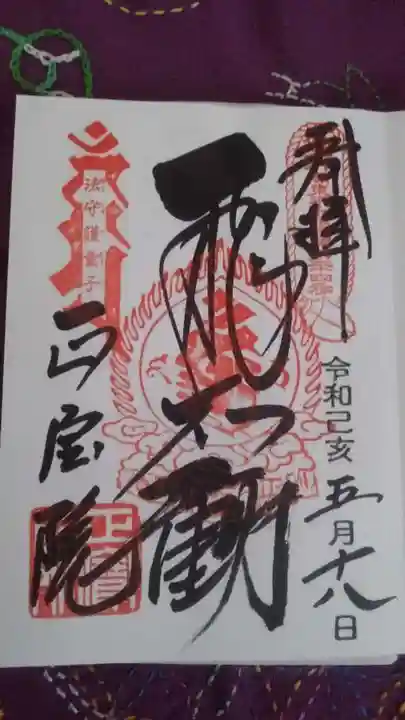 奉拝
令和己亥五月十八日
飛不動
法守護童子
正宝院